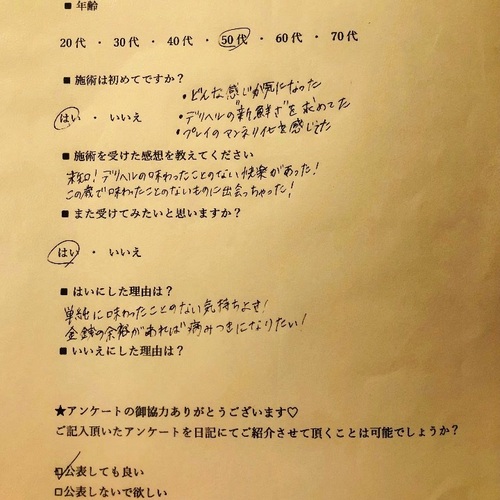 ■ 年齢
20代 ・ 30代 ・ 40代 ・ 50代 ・ 60代 ・ 70代
■ 施術は初めてですか?
・どんな感じか気になった
はい ・ いいえ
・デリヘルの"新鮮さ"を求めてた
・プレイのマンネリ化を感じてた
■ 施術を受けた感想を教えてください
未知!デリヘルの味わったことのない快楽があった!
この歳で味わったことのないものに出会っちゃった!
■ また受けてみたいと思いますか?
はい ・ いいえ
■ はいにした理由は?
単純に味わったことのない気持ちよさ!
金銭の余裕があれば病みつきになりたい!
■ いいえにした理由は?
★アンケートの御協力ありがとうございます♡
ご記入頂いたアンケートを日記にてご紹介させて頂くことは可能でしょうか?
☑公表しても良い
□公表しないで欲しい